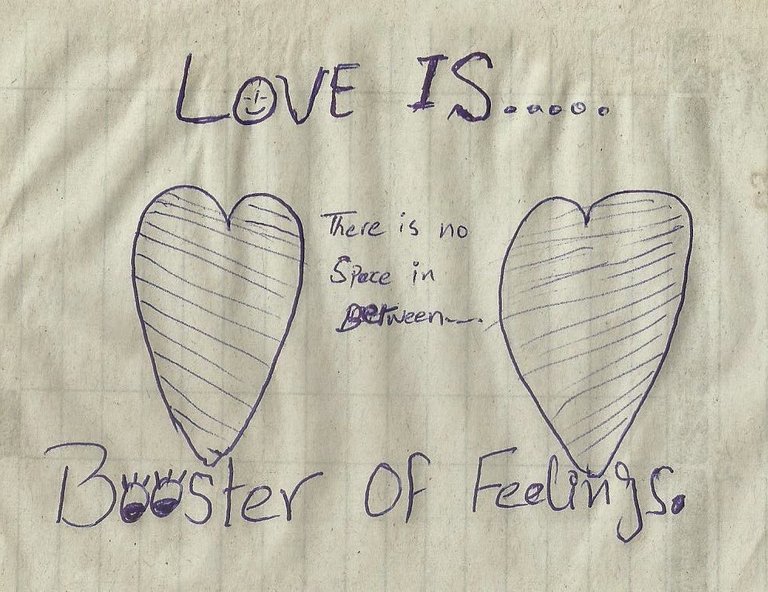 LOVE IS......
There is no
Space in
Between--.
Booster Of Feelings.